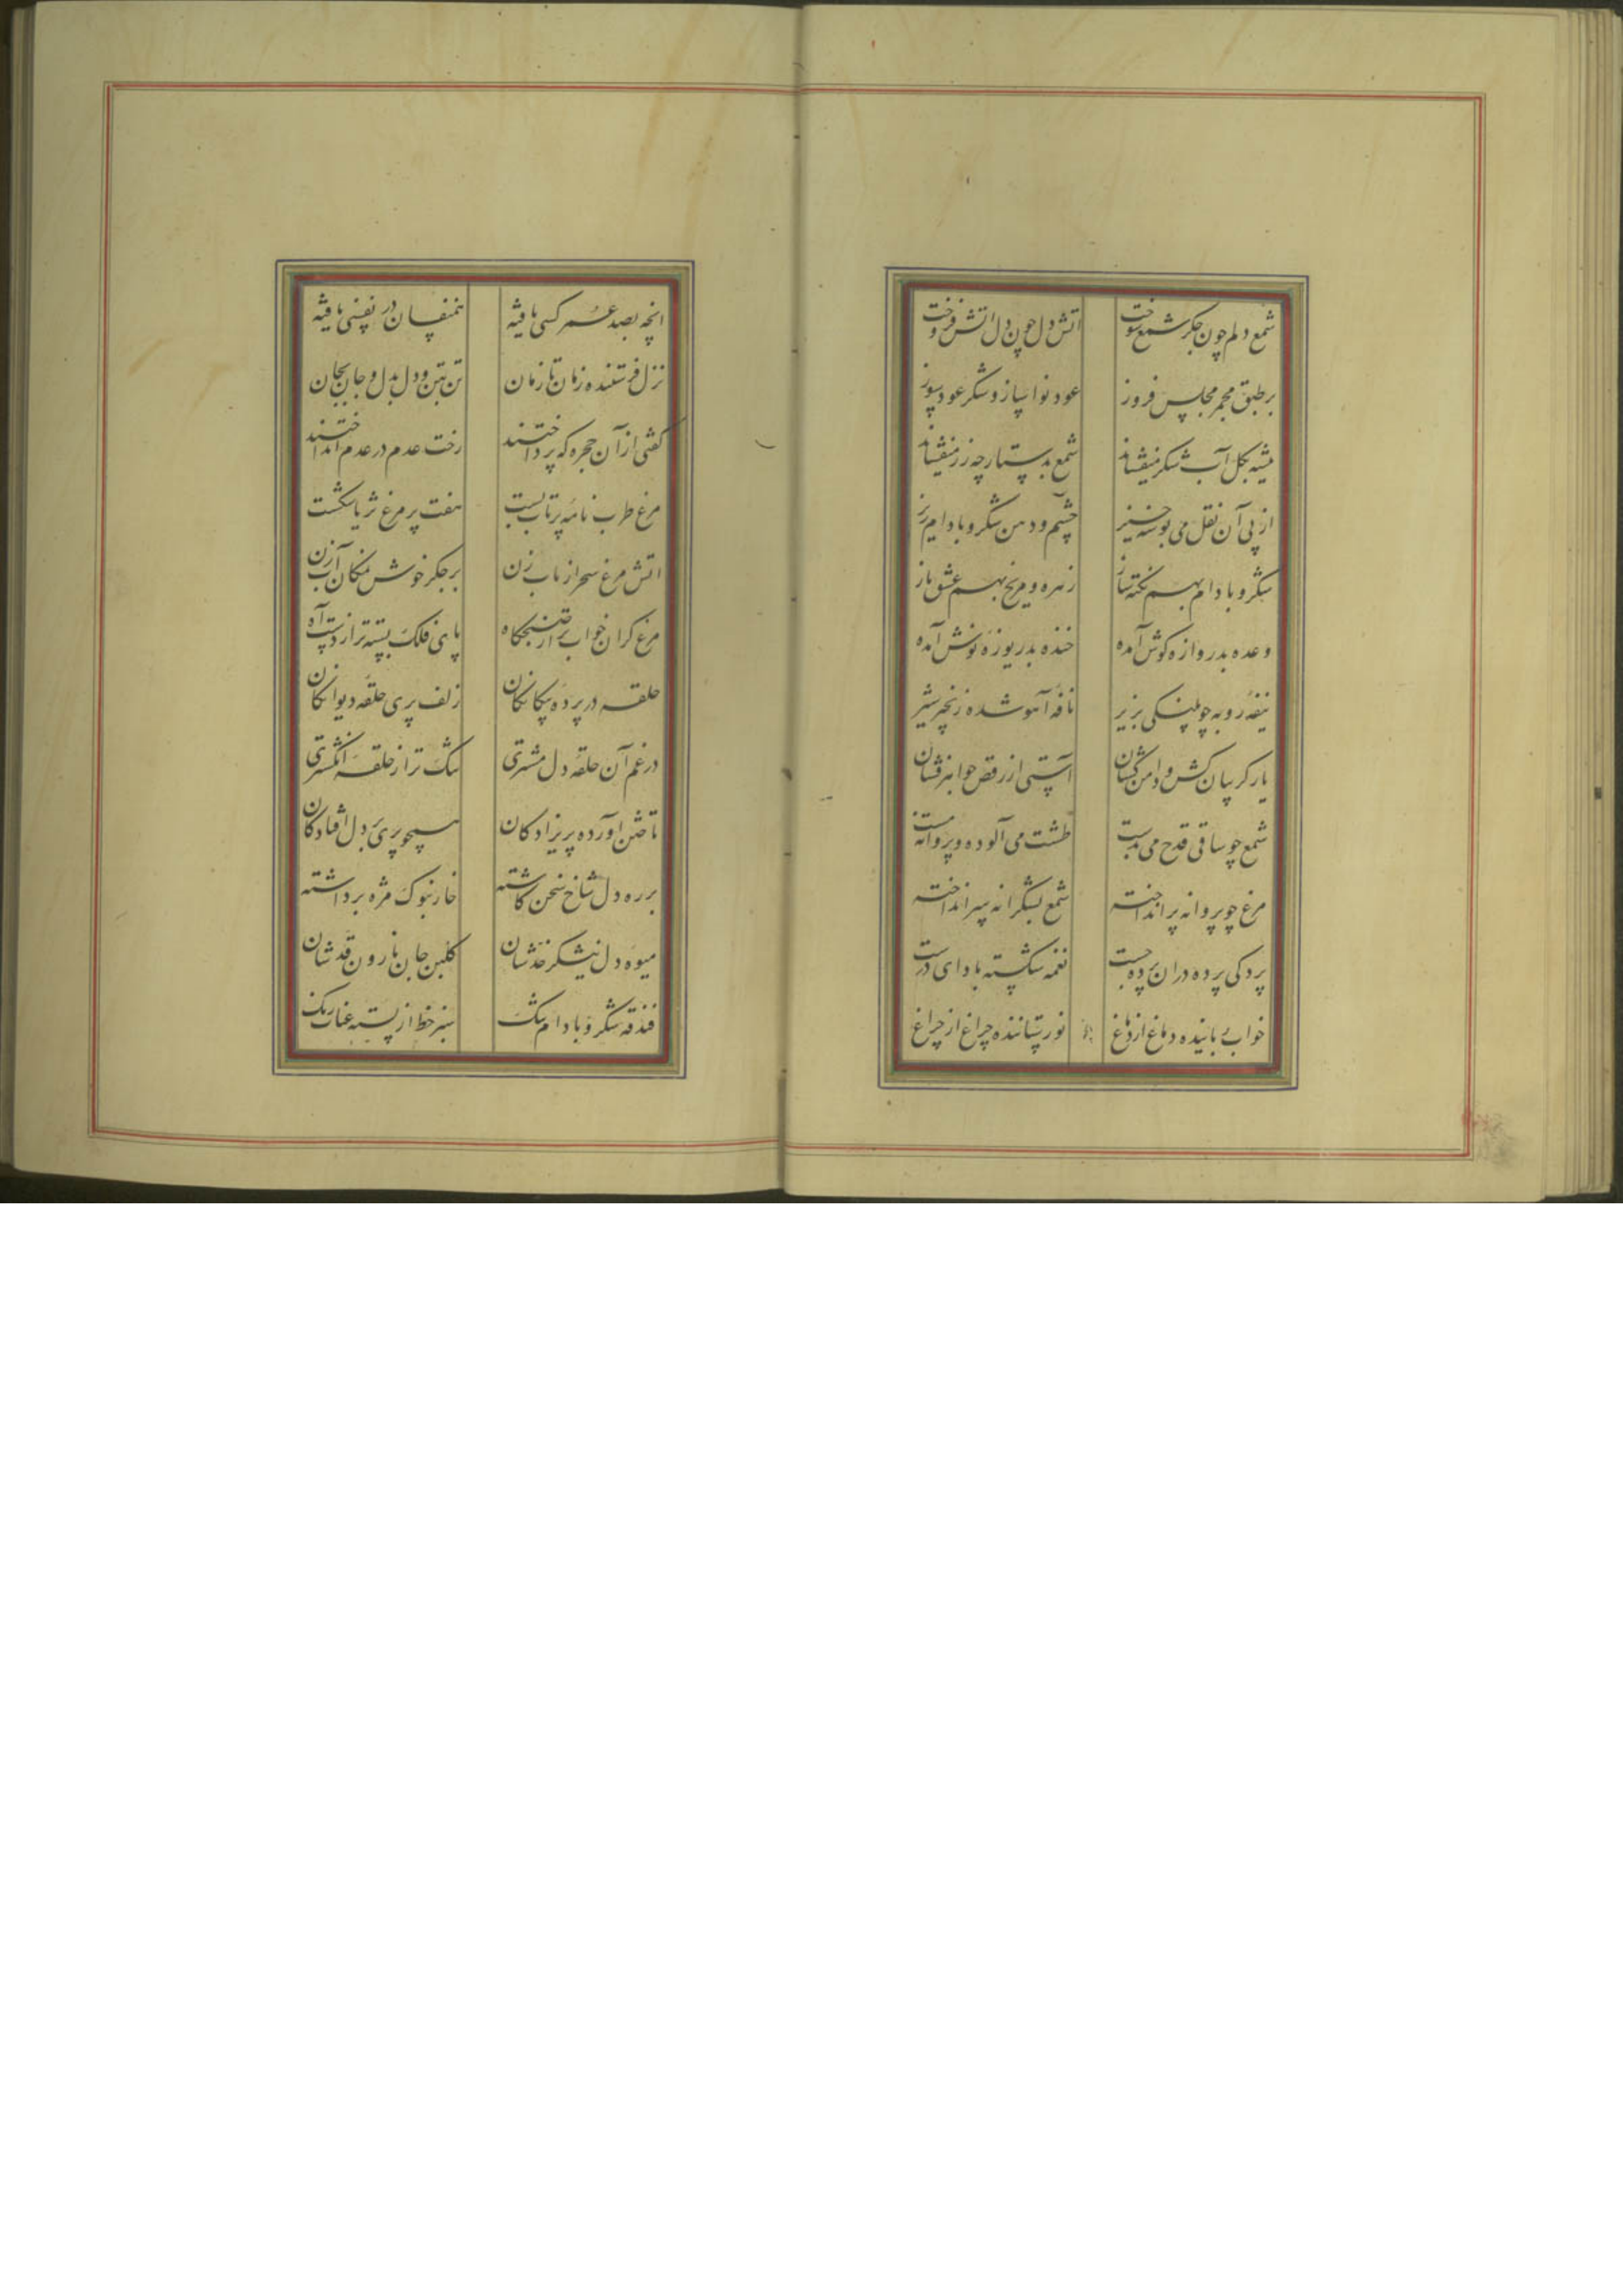 شمع دلم چون جگر شمع سوخت اتش دل چون دل اتش فروخت
بر طبق مجمر مجلس فروز عود نواساز و شکر عود سوز
شیشه بکل آب شکر میفشاند شمع بدستارچه زر میفشاند
از پی آن نقل می بوسه خیز چشم و دهن شکر و بادام ریز
شکر و بادام بهم نکته ساز زهره و مریخ بهم عشق باز
وعده بدروازه کوش آمده خنده بدریوزه نوش آمده
نیفه روبه چو پلنکی بزیر نافه آهو شده زنجیر شیر
یار کریبان کش و دامن کشان آستی از رقص جواهر فشان
شمع چو ساقی قدح می بدست طشت می آلوده و پروانه مست
مرغ چو پروانه پر انداخته شمع بشکرانه سر انداخته
پردکی پرده دران پرده جست نغمه شکسته باداای درست
خواب رباینده دماغ از دماغ نور ستاننده چراغ از چراغ
انچه بصد عمر کسی یافته همنفسان در نفسی یافته
نزل فرستنده زمان تا زمان تن بتن و دل بدل و جان بجان
کفتی از آن حجره که پرداختند رخت عدم در عدم انداختند
مرغ طرب نامه پر تاب بست هفت پر مرغ ثریا شکست
اتش مرغ سحر از باب زن بر جکر خوش نمکان آب زن
مرغ کران خواب تر از صبحکاه پای فلک بسته تر از دست آه
حلقه در پرده بیکانکان زلف پری حلقه دیوانکان
در غم آن حلقه دل مشتری تنک تر از حلقه انکشتری
تاختن آورده پریزادکان همچو پری بر دل افتادکان
بر ره دل شاخ سخن کاشته خار بنوک مژه برداشته
میوه دل نیشکر خدشان کلبن جان نارون قدشان
فندقه شکر و بادام تنک سبز خط از پسته عناب رنک